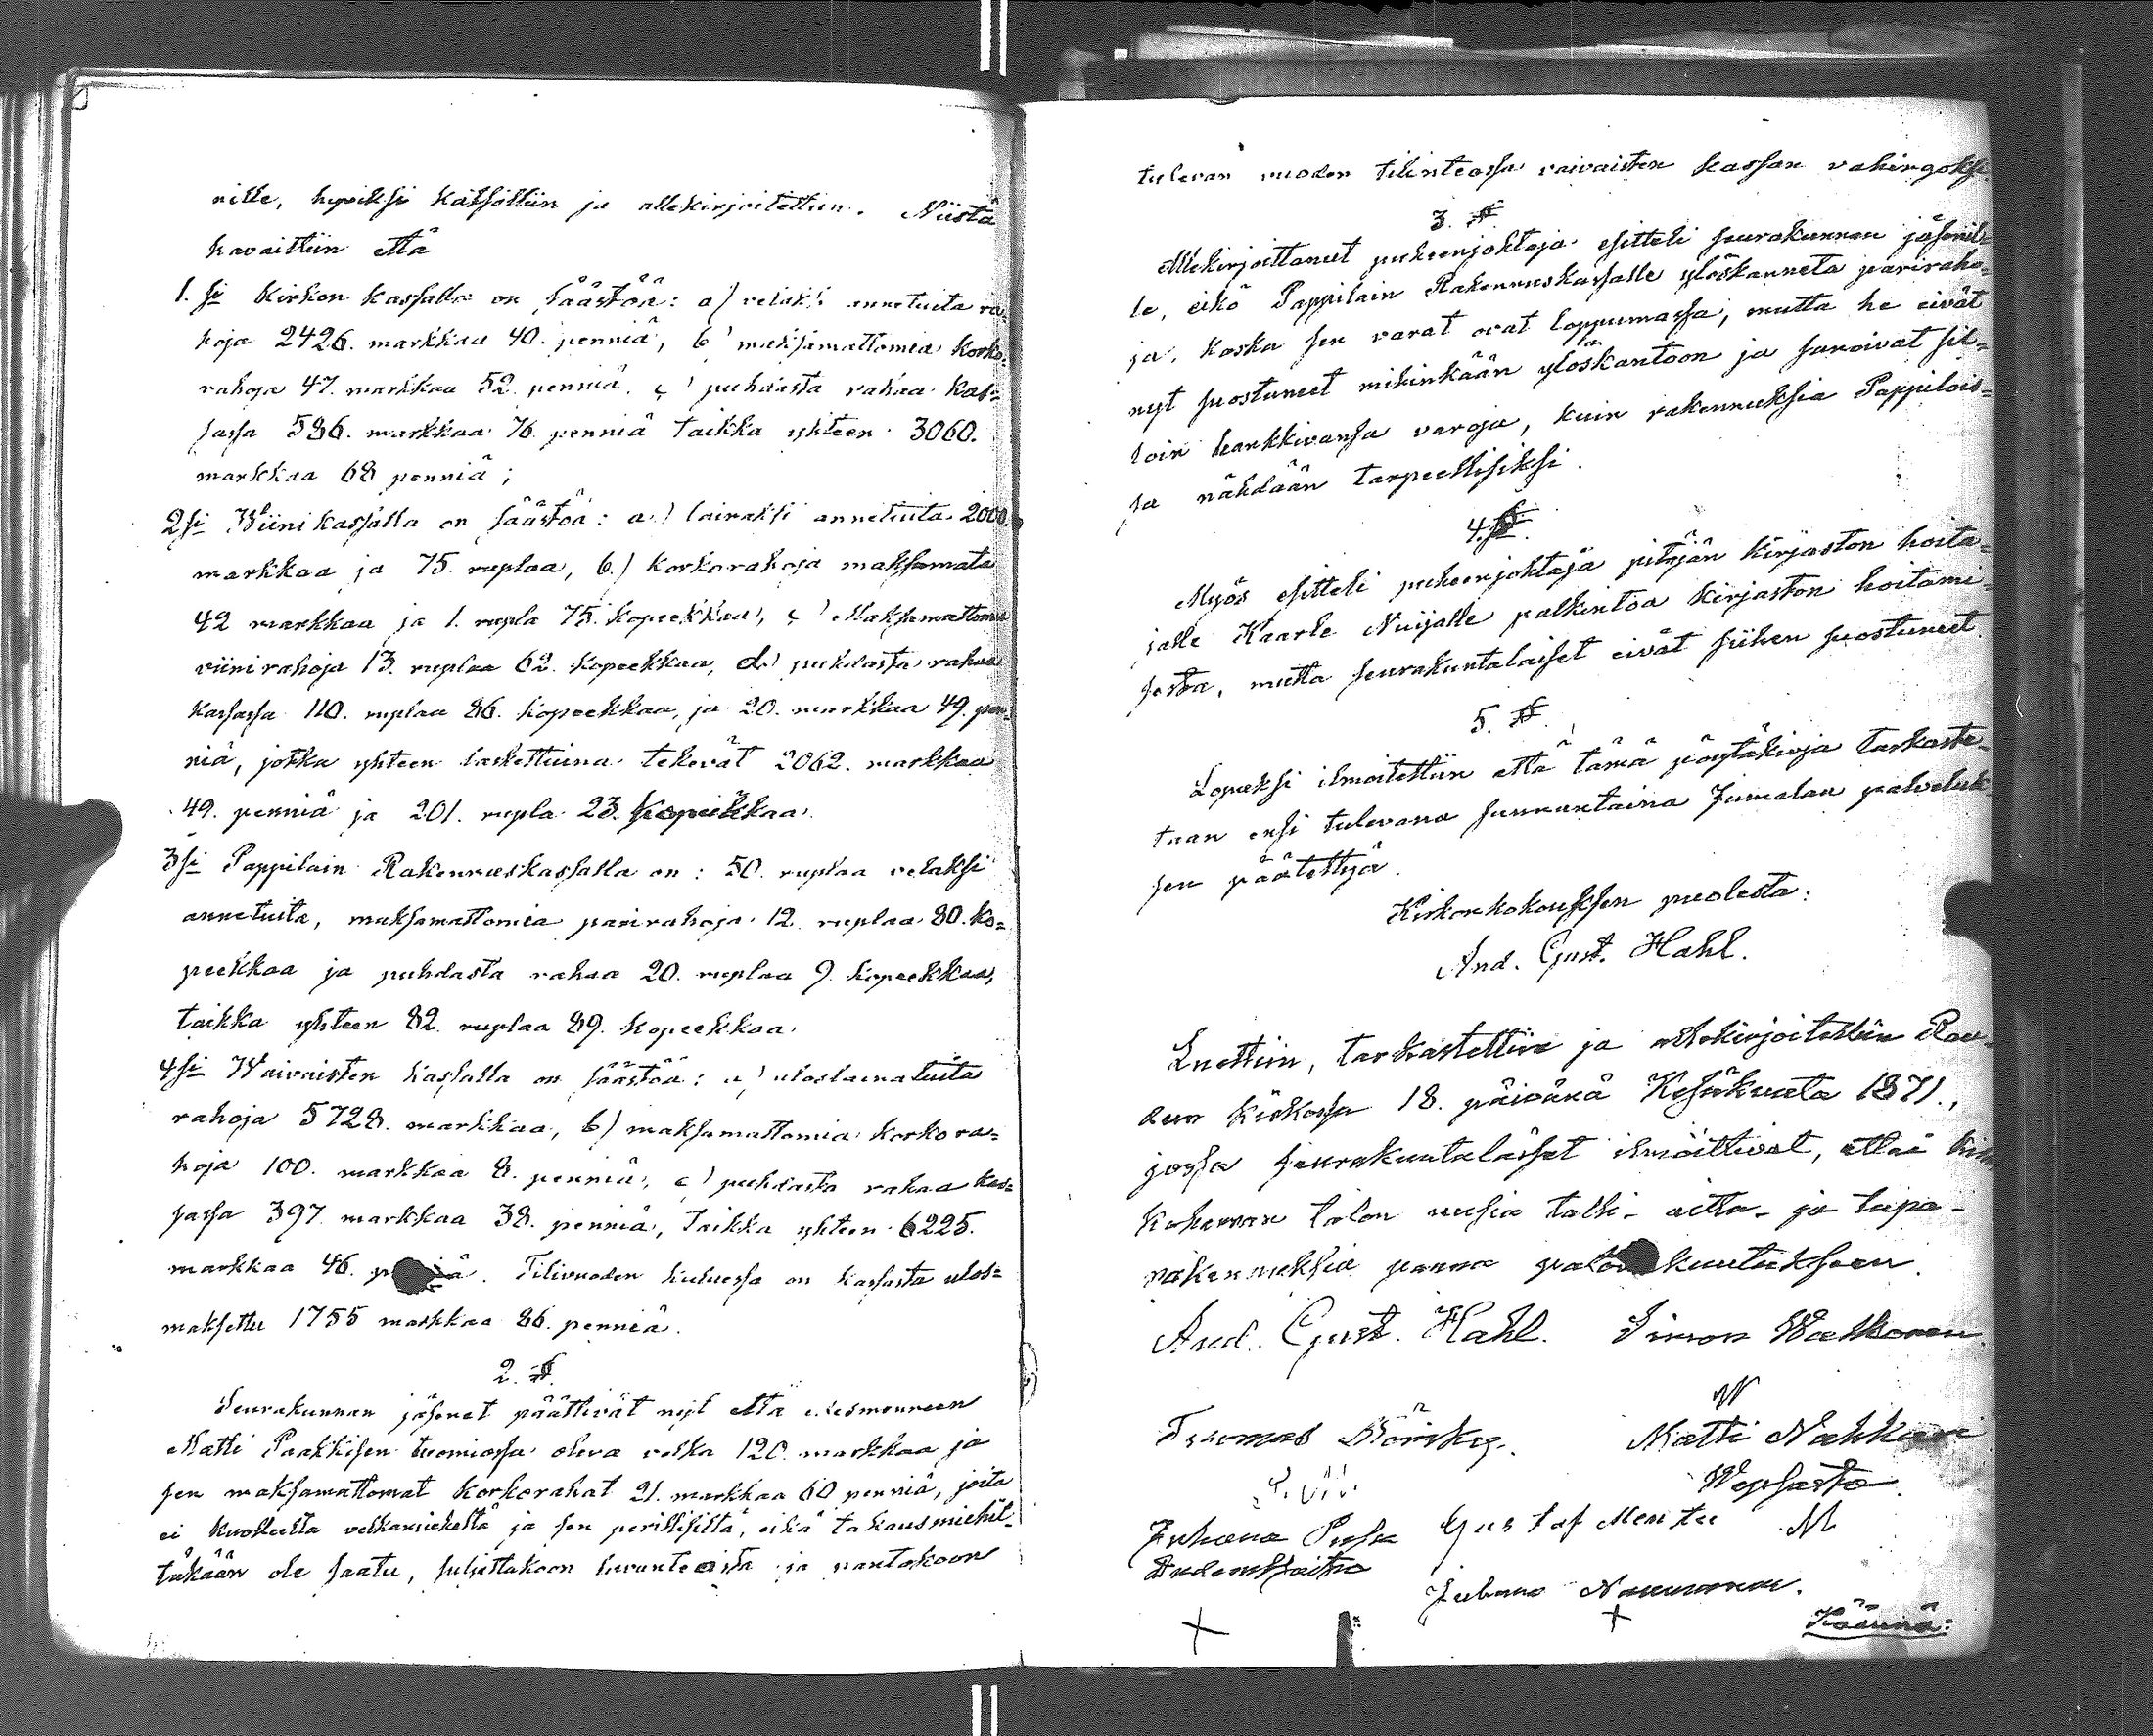 nille, hyviksi katsottiin ja allekirjoitettiin. Niistä
havaittiin että
1.si Kirkon kassalla on säästöä: a) velaksi annetuita ra-
hoja 2426. markkaa 40. penniä, b) maksamattomia korko-
rahoja 47. markkaa 52. penniä, c) puhdasta rahaa kas-
sassa 586. markkaa 76 penniä taikka yhteen 3060.
markkaa 68 penniä;
2si Wiinikassalla on säästöä: a.) lainaksi annetuita 2000.
markkaa ja 75. ruplaa, b.) korkorahoja maksamata
42 markkaa ja 1. rupla 75. kopeekkaa, c) Maksamattomia
viinirahoja 13. ruplaa 62. kopeekkaa, d.) puhdasta rahaa
kassassa 110. ruplaa 86. kopeekkaa, ja 20. markkaa 49. pen-
niä, jotka yhteen laskettuina tekevät 2062. markkaa
49. penniä ja 201. rupla 23. kopeekkaa.
3si Pappilain Rakennuskassalla on: 50. ruplaa velaksi
annetuita, maksamattomia parirahoja 12. ruplaa 80. ko-
peekkaa ja puhdasta rahaa 20. ruplaa 9. kopeekkaa,
taikka yhteen 82. ruplaa 89. kopeekkaa.
4si Waivaisten kassalla on säästöä: a) uloslainatuita
rahoja 5728. markkaa, b) maksamattomia korkora-
hoja 100. markkaa 8. penniä, c) puhdasta rahaa kas-
sassa 397 markkaa 38. penniä, Taikka yhteen 6225.
markkaa 46. penniä. Tilivuoden kuluessa on kassasta ulos-
maksettu 1755 markkaa 86. penniä.
2. §.
Seurakunnan jäsenet päättivät nyt että edesmenneen
Matti Paakkisen tuomiossa oleva velka 120. markkaa ja
sen maksamattomat korkorahat 21. markkaa 60 penniä, joita
ei kuolleelta velkamieheltä ja sen perillisiltä, eikä takausmiehil-
täkään ole saatu, suljettakoon luvunteosta ja pantakoon
tulevan vuoden tilinteossa vaivaisten kassan vahingoksi
3. §.
Allekirjoittanut puheenjohtaja esitteli seurakunnan jäsenil-
le, eikö Pappilain Rakennuskassalle ylöskanneta pariraho-
ja, koska sen varat ovat loppumassa, mutta he eivät
nyt suostuneet mihinkään ylöskantoon ja sanoivat sil-
loin hankkivansa varoja, kuin rakennuksia Pappilois-
sa nähdään tarpeellisiksi.
4. §.
Myös esitteli puheenjohtaja pitäjän kirjaston hoita-
jalle Kaarle Nuijalle palkintoa kirjaston hoitami-
sesta, mutta seurakuntalaiset eivät siihen suostuneet.
5. §.
Lopuksi ilmoitettiin että tämä pöytäkirja tarkaste-
taan ensi tulevana sunnuntaina Jumalan palveluk-
sen päätettyä.
Kirkonkokouksen puolesta:
And. Gust. Hahl.
Luettiin, tarkastettiin ja allekirjoitettiin Rau-
dun kirkossa 18. päivänä Kesäkuuta 1871.,
jossa seurakuntalaiset ilmoittivat, että
talon uusia talli- aitta- ja
rakennuksia panna palovakuutukseen.
And. Gust. Hahl. Simon
Tuomas Matti
Wepsasta
Juhana Gustaf Mentu M
Juhana
Käännä: